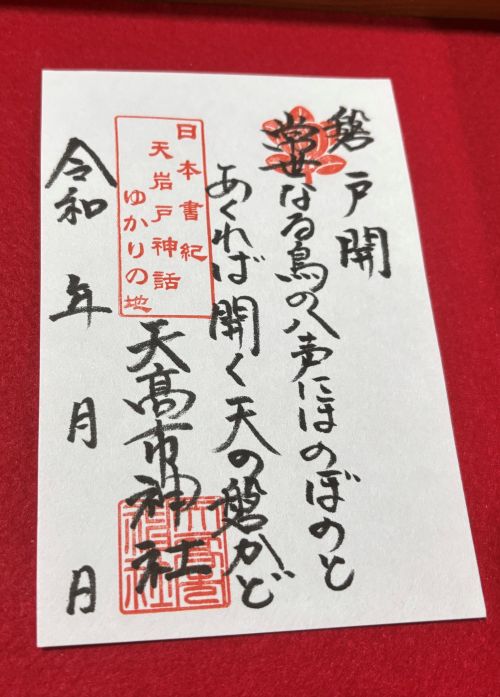 磐戸開
常世なる鳥の八声にほのぼのと
あくれば開く天の磐かど
日本書紀
天岩戸神話
ゆかりの地
天高市神社
令和 年 月 日